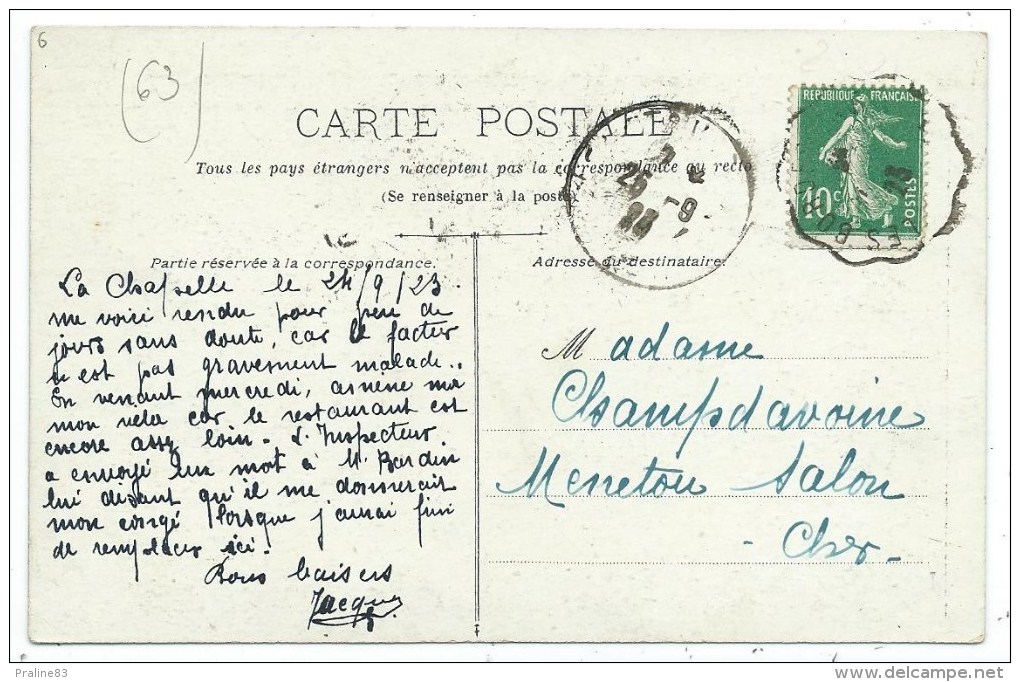 6
(63)
CARTE POSTALE
Tous les pays étrangers n'acceptent pas la correspondance au recto
(Se renseigner à la poste)
Partie réservée à la correspondance.
La Chapelle le 24/9/23.
me voici rendu pour peu de
jours sans doute, car le facteur
n'est pas gravement malade..
En venant mercredi, amène moi
mon vélo car le restaurant est
encore assez loin - L'Inspecteur
a envoyé un mot à M. Bardin
lui disant qu'il me donnerait
mon congé lorsque j'aurai fini
de remplacer ici.
Bons baisers
Jacques
Adresse du destinataire.
Madame
Champdavoine
Menetou Salon
- Cher -
REPUBLIQUE FRANÇAISE
10c
POSTES
25 -9
23
Praline83
www.delcampe.net